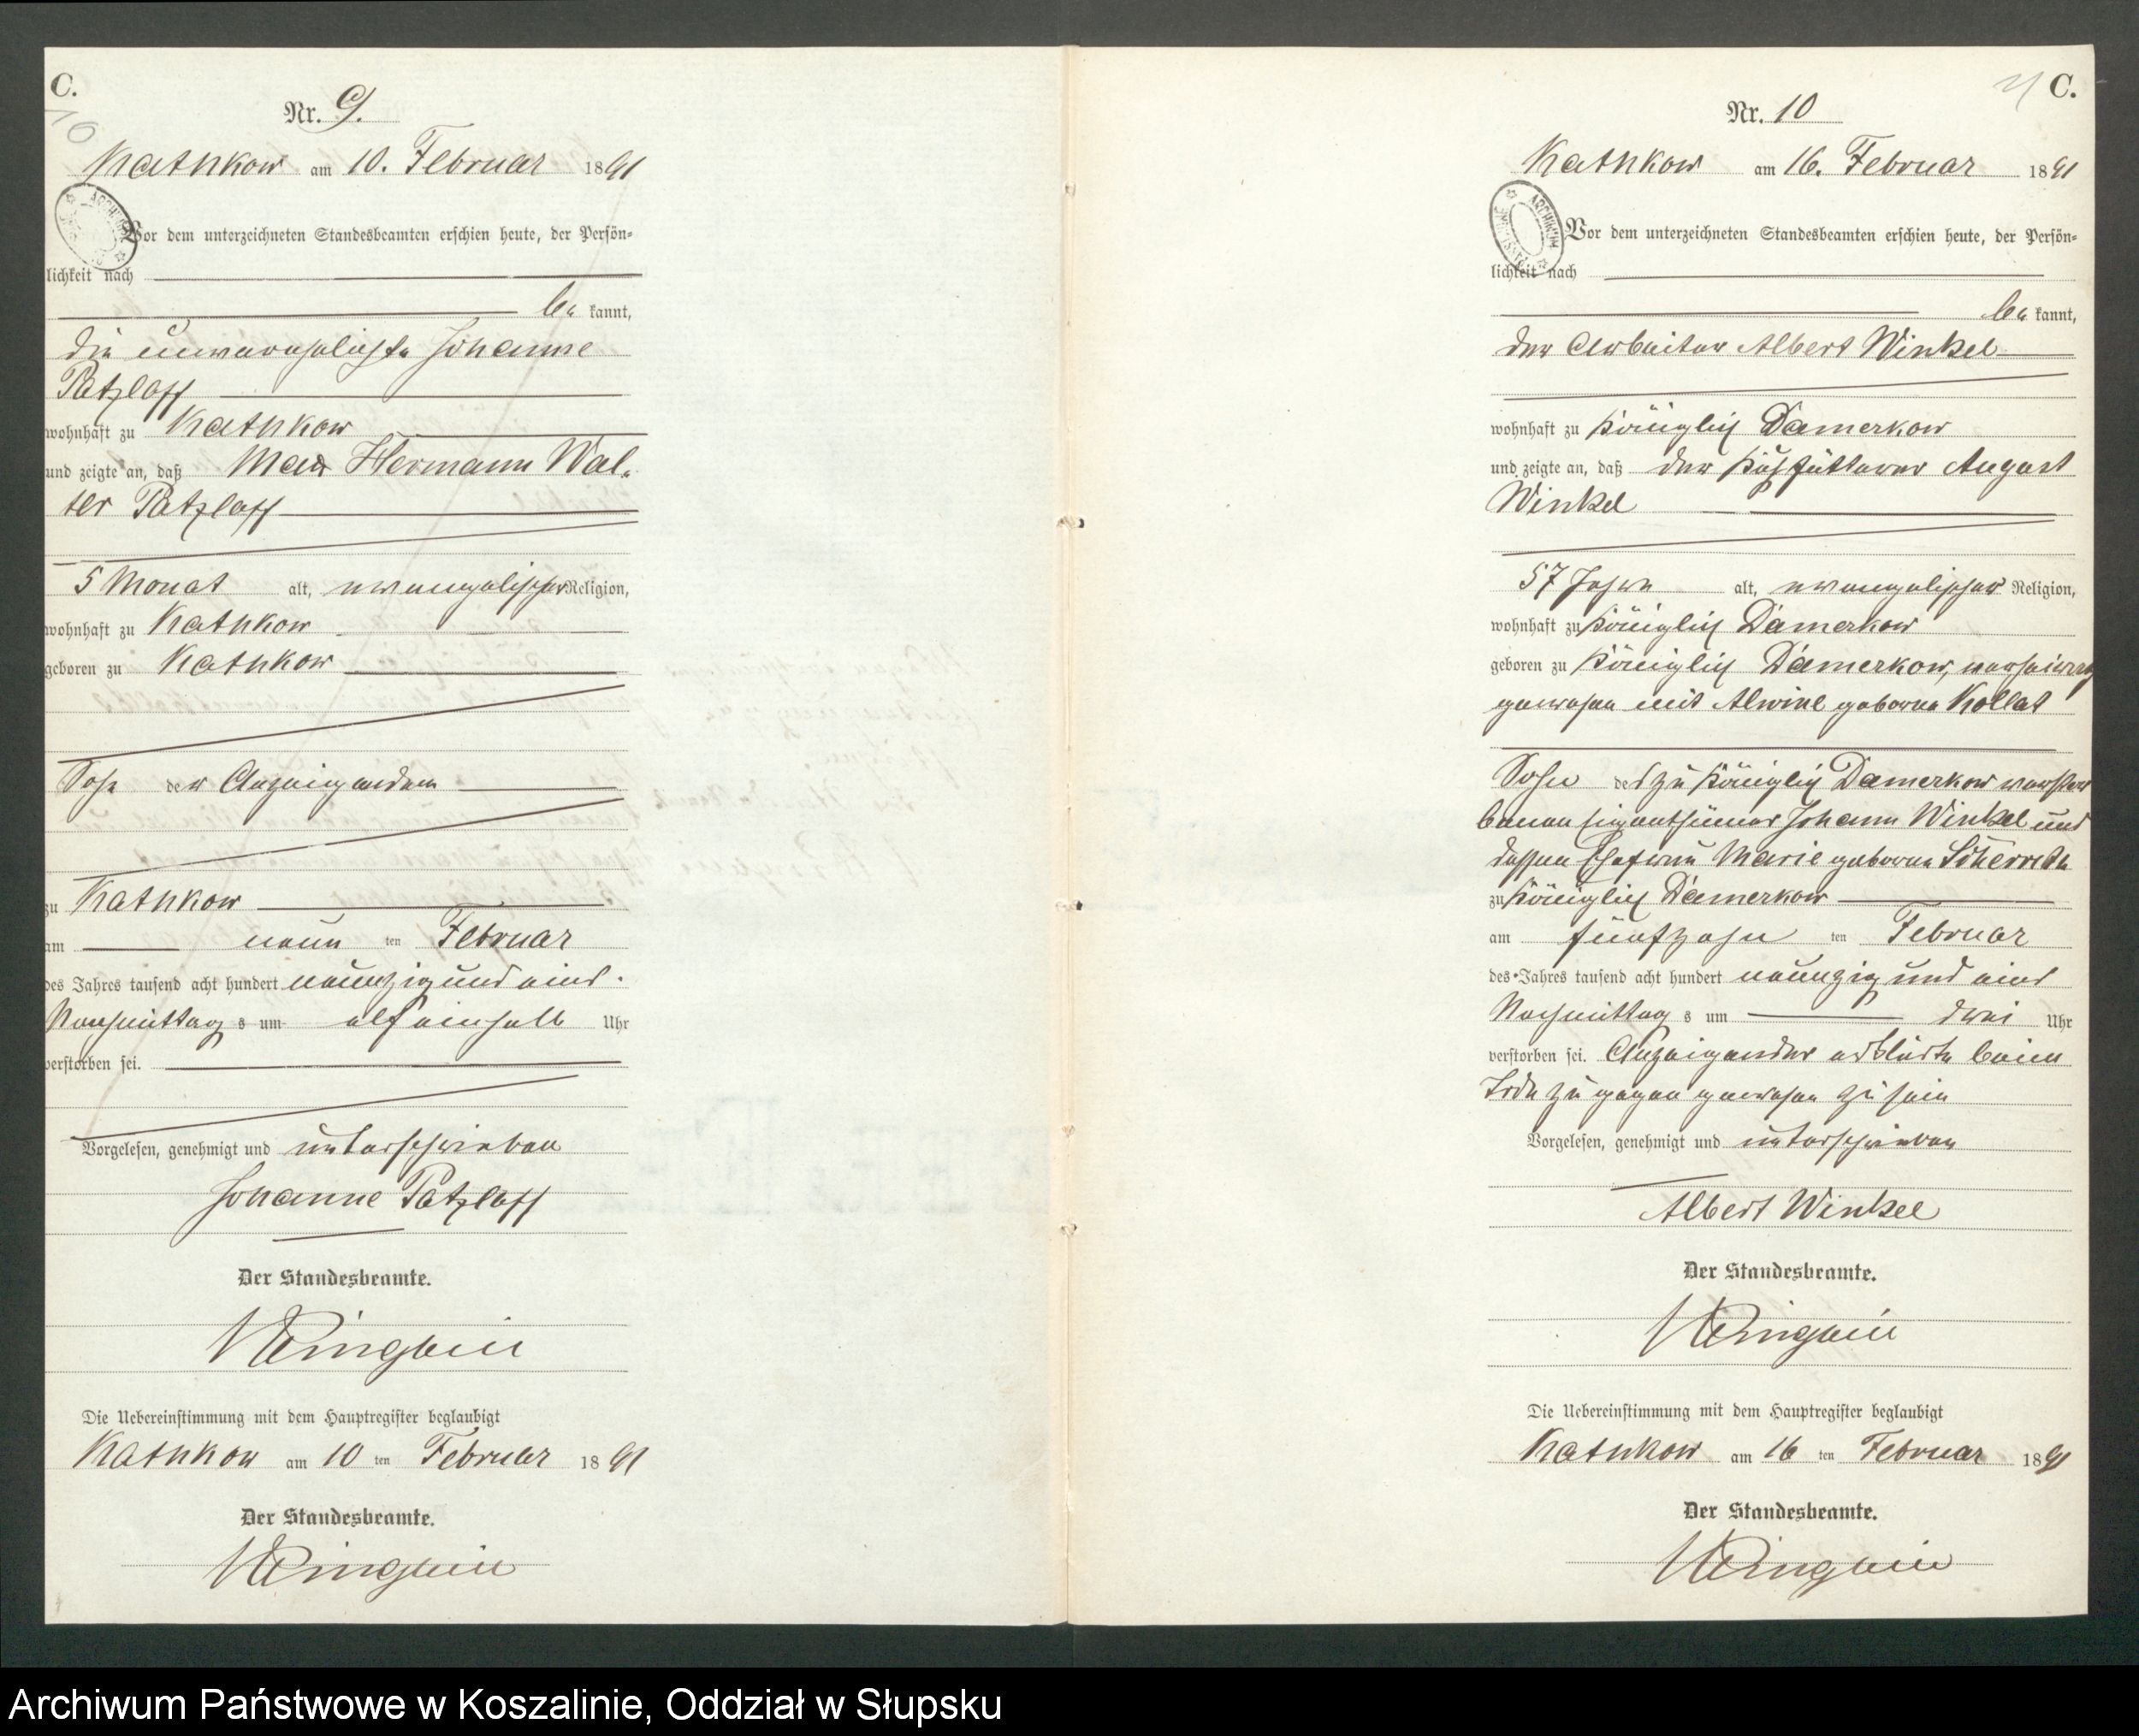 C.
Nr. 9.
Kathkow am 10. Februar 1891
Vor dem unterzeichneten Standesbeamten erschien heute, der Persön=
lichkeit nach
be kannt,
die unverehelichte Johanne
Patzlaff
wohnhaft zu Kathkow
und zeigte an, daß Max Hermann Wal-
ter Patzlaff
5 Monat alt, evangelischer Religion,
wohnhaft zu Kathkow
geboren zu Kathkow
Sohn der Anzeigenden
zu Kathkow
am neun ten Februar
des Jahres tausend acht hundert neunzig und eins
Vormittags um elf einhalb Uhr
verstorben sei.
Vorgelesen, genehmigt und unterschrieben
Johanne Patzlaff
Der Standesbeamte.
Die Uebereinstimmung mit dem Hauptregister beglaubigt
Kathkow am 10 ten Februar 1891
Der Standesbeamte.
C.
Nr. 10
Kathkow am 16. Februar 1891
Vor dem unterzeichneten Standesbeamten erschien heute, der Persön=
lichkeit nach
be kannt,
der Arbeiter Albert Winkel
wohnhaft zu Königlich Damerkow
und zeigte an, daß der Kuhfütterer August
Winkel
57 Jahre alt, evangelischer Religion,
wohnhaft zu Königlich Damerkow
geboren zu Königlich Damerkow, verheirathet
gewesen mit Alwine geborne Kollat
Sohn des zu Königlich Damerkow verstor
benen Eigenthümer Johann Winkel und
dessen Ehefrau Marie geborne
zu Königlich Damerkow
am fünfzehn ten Februar
des Jahres tausend acht hundert neunzig und eins
Nachmittags um drei Uhr
verstorben sei. Anzeigender erklärte beim
Tode zugegen gewesen zu sein
Vorgelesen, genehmigt und unterschrieben
Albert Winkel
Der Standesbeamte.
Die Uebereinstimmung mit dem Hauptregister beglaubigt
Kathkow am 16 ten Februar 1891
Der Standesbeamte.
Archiwum Państwowe w Koszalinie, Oddział w Słupsku